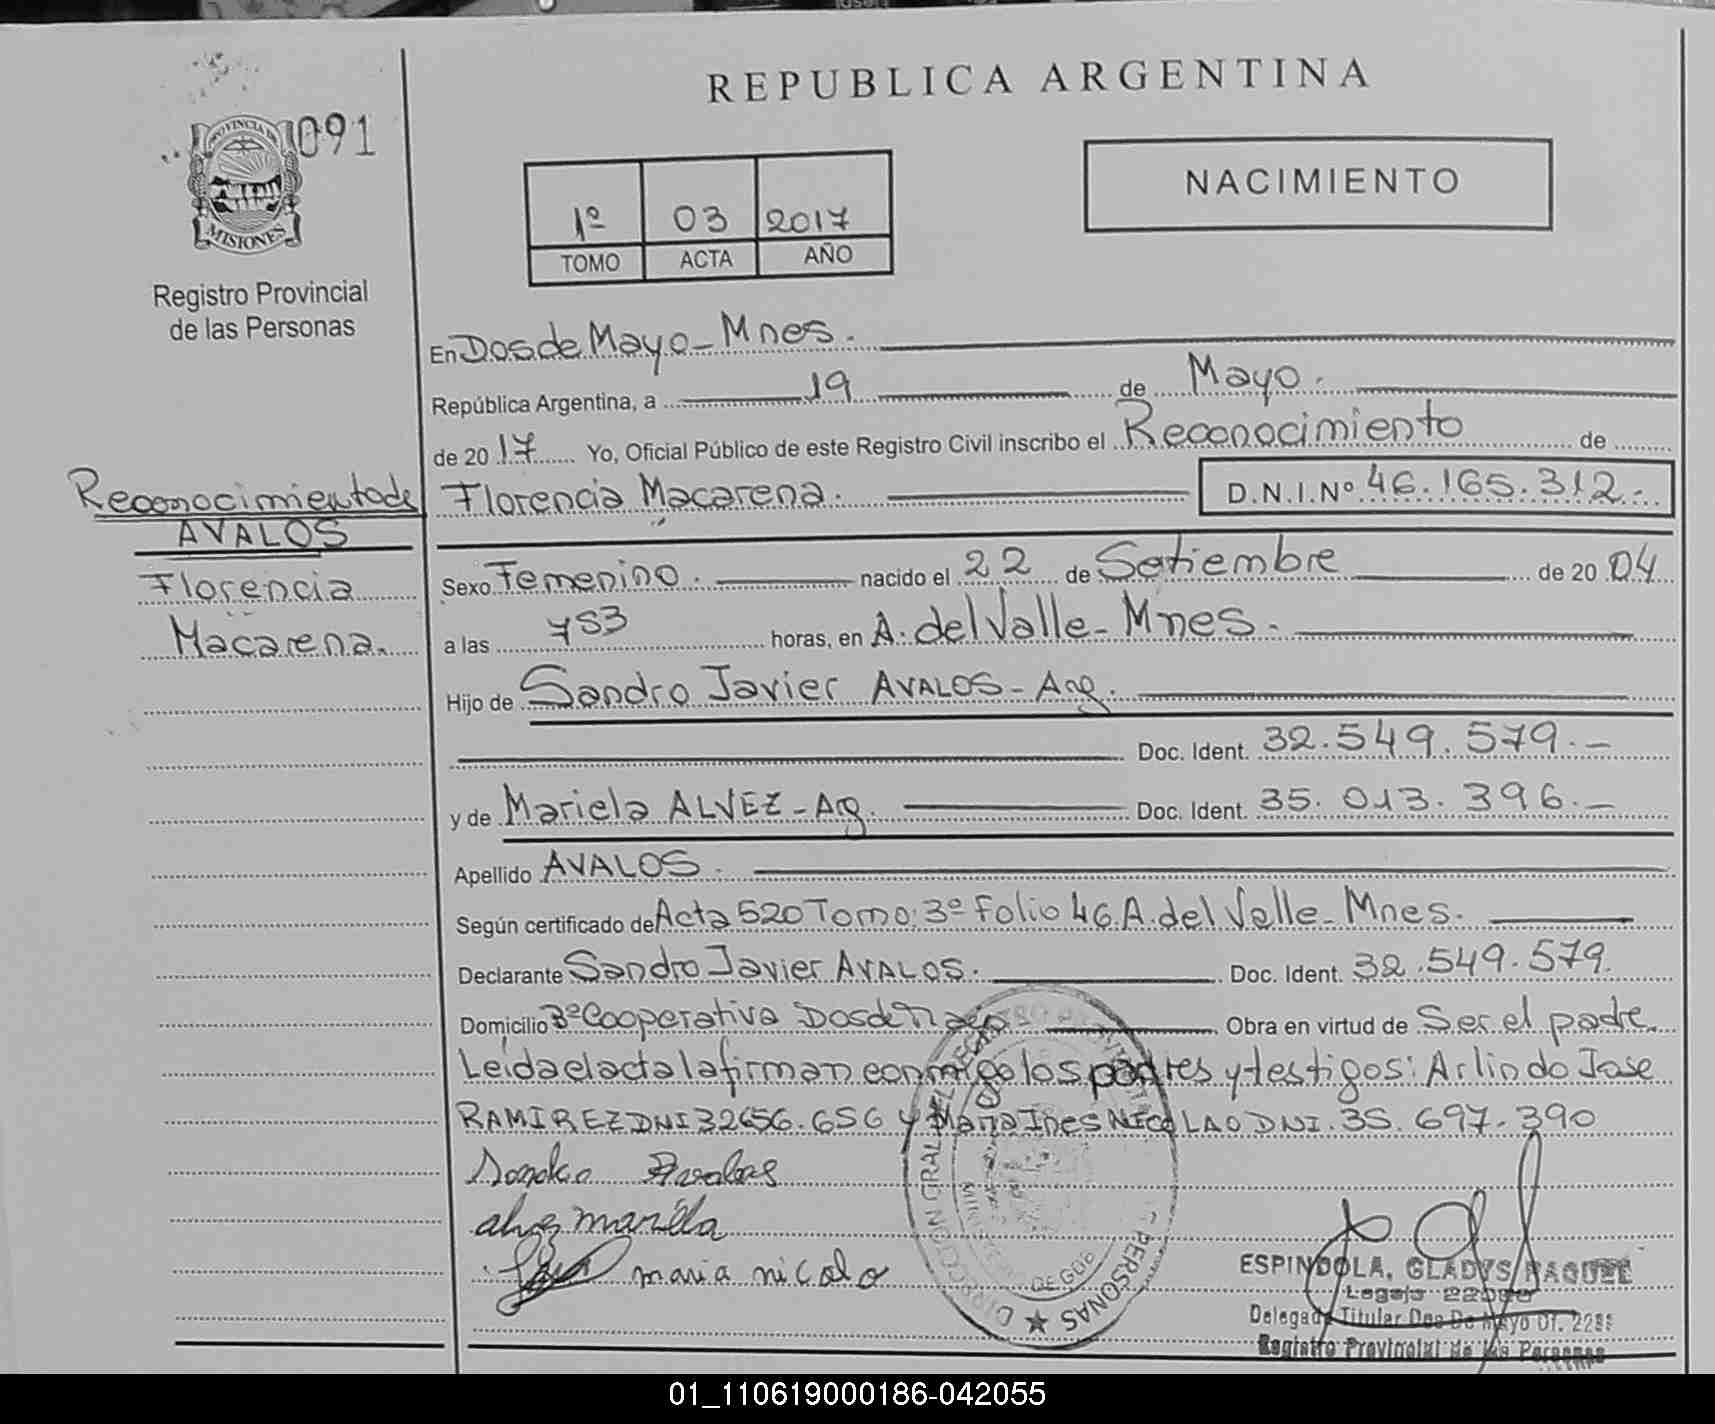 REPUBLICA ARGENTINA
091
PROVINCIA DE
MISIONES
Registro Provincial
de las Personas
NACIMIENTO
1º 03 2017
TOMO ACTA AÑO
En Dos de Mayo - Mnes.
República Argentina, a 19 de Mayo.
de 2017 Yo, Oficial Público de este Registro Civil inscribo el Reconocimiento de
Florencia Macarena. D.N.I.Nº 46.165.312.-
Reconocimiento de
AVALOS
Florencia
Macarena.
Sexo Femenino. nacido el 22 de Setiembre de 2004
a las 753 horas, en A. del Valle - Mnes.
Hijo de Sandro Javier AVALOS - Arg.
Doc. Ident. 32.549.579.-
y de Mariela ALVEZ - Arg. Doc. Ident. 35.013.396.-
Apellido AVALOS.
Según certificado de Acta 520 Tomo: 3º Folio 46. A. del Valle - Mnes.
Declarante Sandro Javier AVALOS. Doc. Ident. 32.549.579.
Domicilio 3º Cooperativa Dos de Mayo Obra en virtud de Ser el padre.
Leida el acta la firman conmigo los padres y testigos: Arlindo Jose
RAMIREZ DNI 32656.656 y Maria Ines NICOLAO DNI. 35.697.390
Sandro Avalos
alvez mariela
maria nicolao
DIRECCION GRAL DEL REGISTRO PERSONAS
ESPINDOLA, GLADYS RAQUEL
Legajo
Delegada Titular Dos De Mayo Of.
Registro Provincial de las Personas
01_110619000186-042055